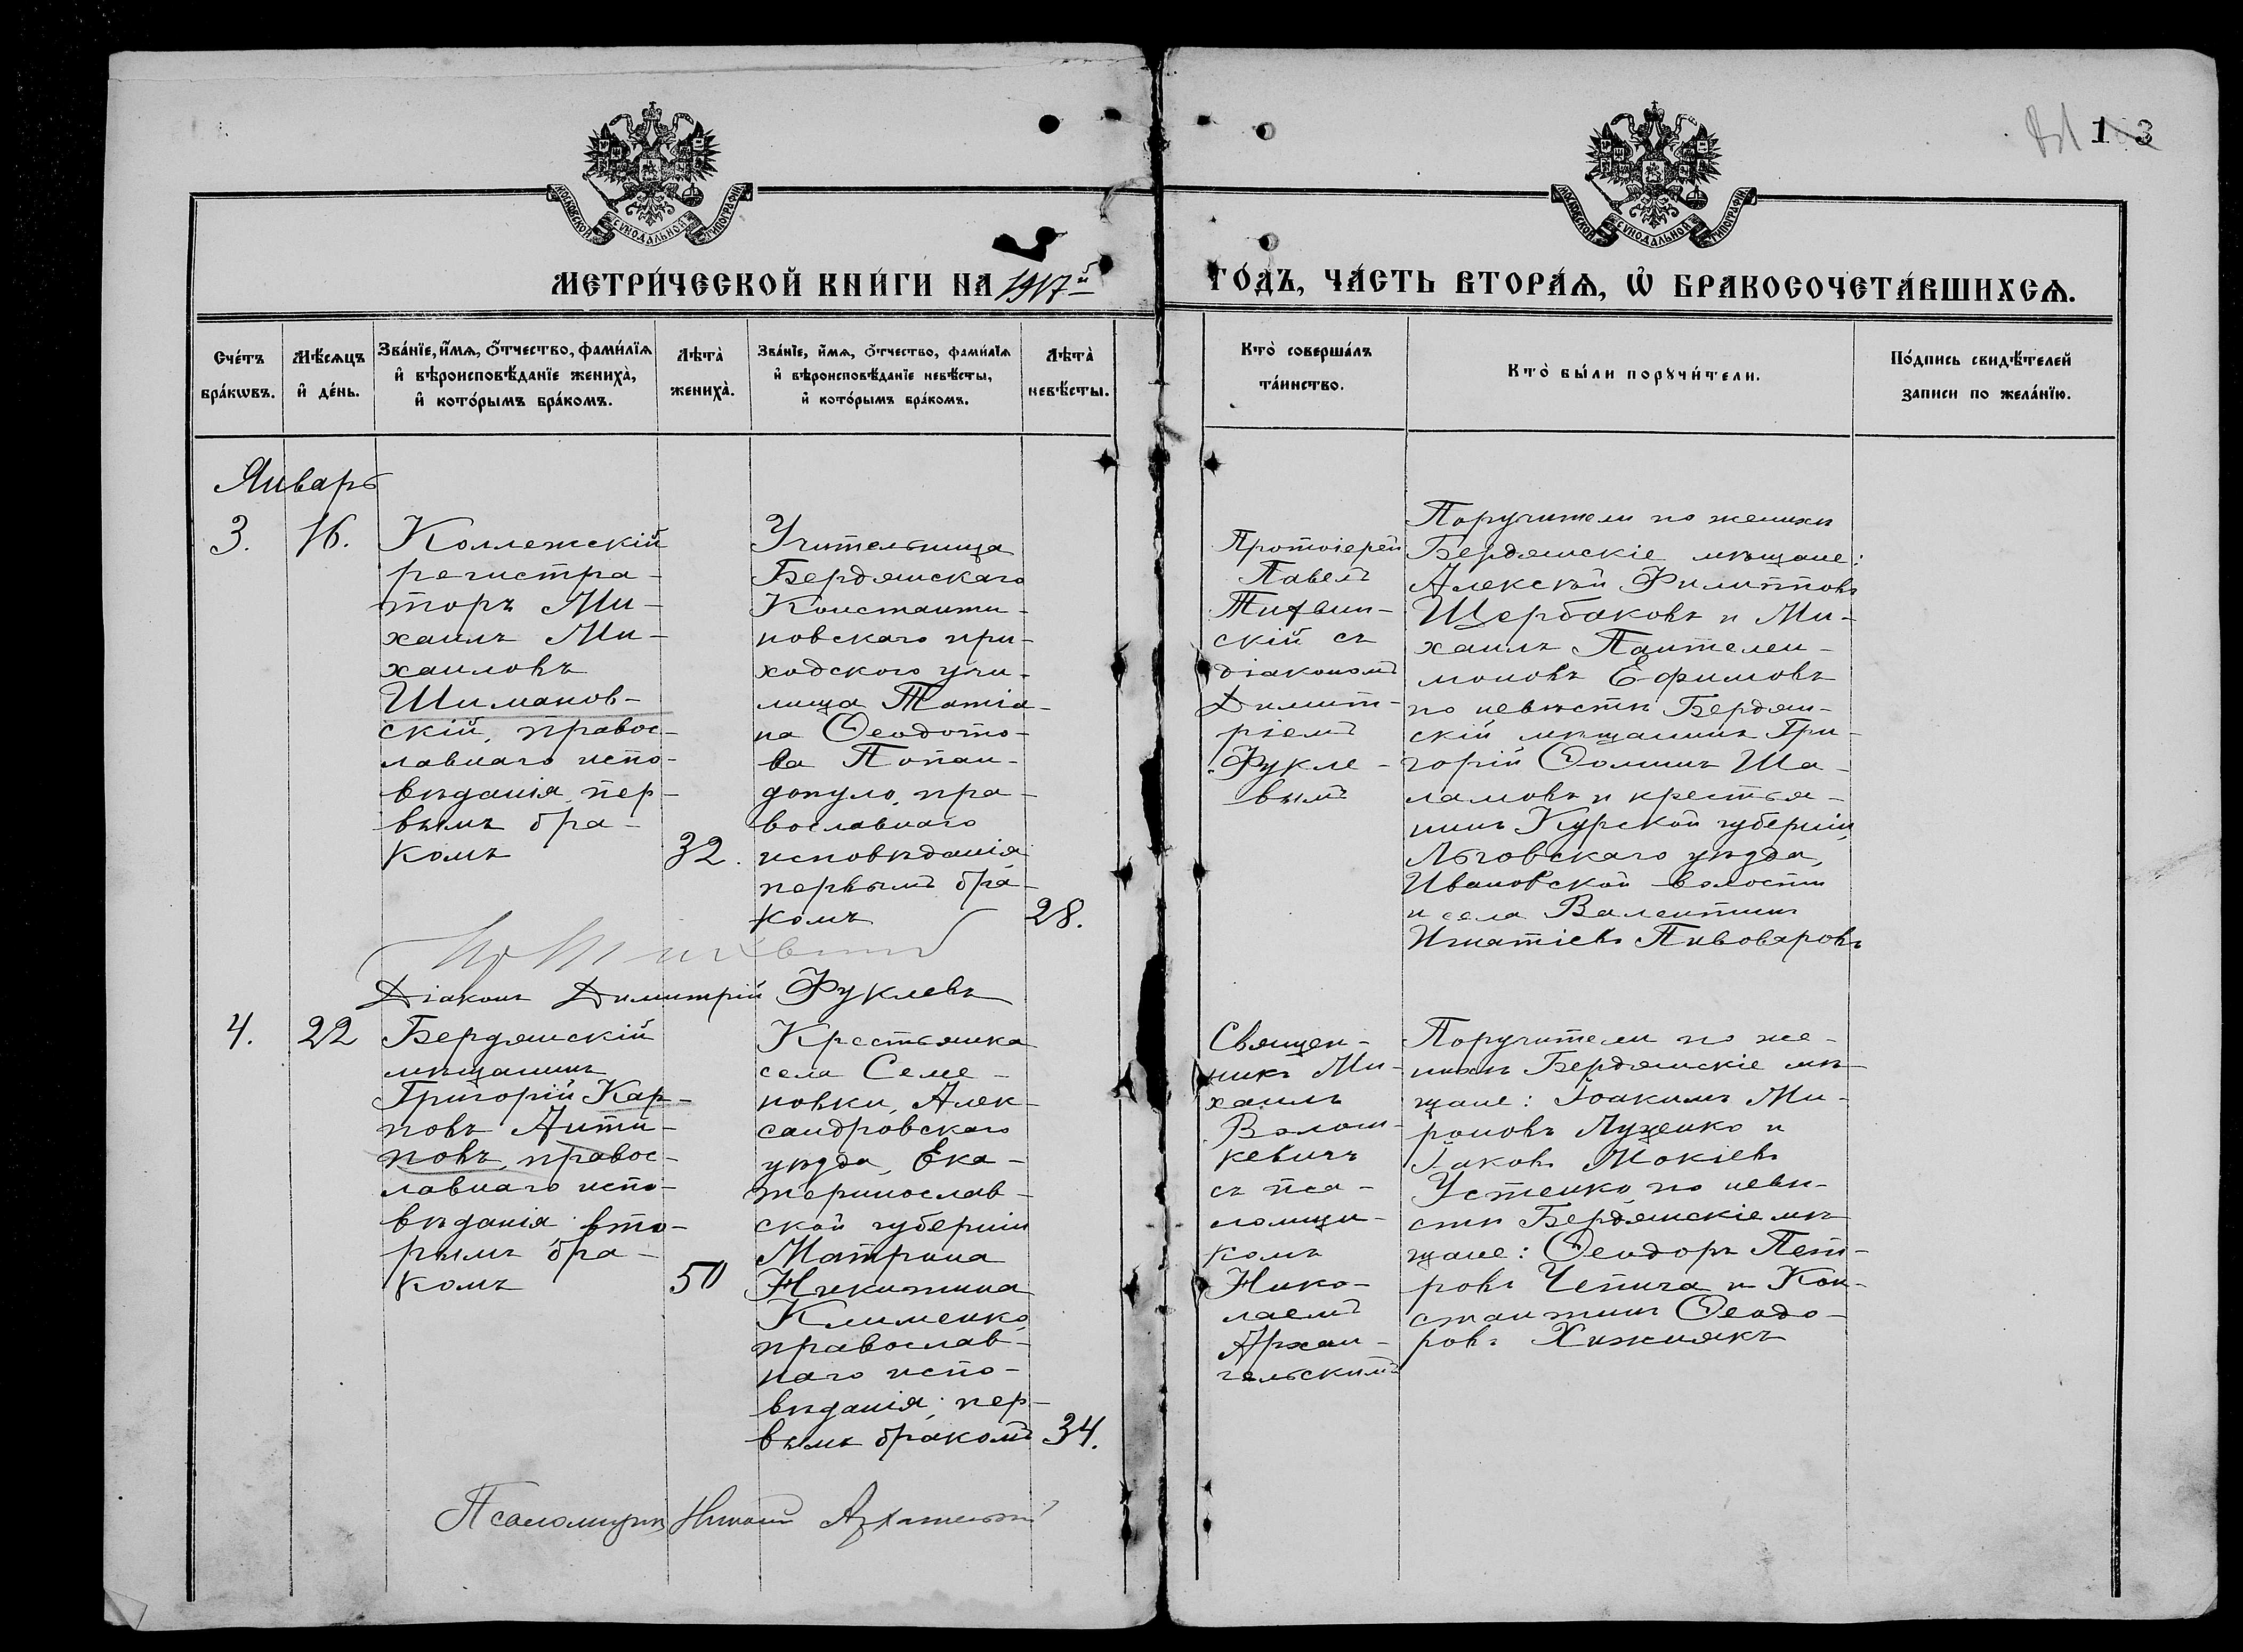 МОСКОВСКОЙ СѴНОДАЛЬНОЙ ТИПОГРАФІИ
МОСКОВСКОЙ СѴНОДАЛЬНОЙ ТИПОГРАФІИ
МЕТРИ́ЧЕСКОЙ КНИ́ГИ НА 1917й
ГО́ДЪ, ЧА́СТЬ ВТОРА́Ѧ, Ѡ҆ БРАКОСОЧЕТА́ВШИХСѦ.
Сче́тъ
бра́кѡвъ.
Мѣ́сѧцъ
и҆ де́нь.
Зва́нїе, и҆́мѧ, ѻ҆́тчество, фами́лїѧ
и҆ вѣроисповѣ́данїе жениха̀,
и҆ кото́рымъ бра́комъ.
Лѣта̀
жениха̀.
Зва́нїе, и҆́мѧ, ѻ҆́тчество, фами́лїѧ
и҆ вѣроисповѣ́данїе невѣ́сты,
и҆ кото́рымъ бра́комъ.
Лѣта̀
невѣ́сты.
Кто̀ соверша́лъ
та́инство.
Кто̀ бы́ли порꙋчи́тели.
По́дпись свидѣ́телей
записи по жела́нїю.
Январь
3.
16.
Коллежскій
регистра-
торъ Ми-
хаилъ Ми-
хаиловъ
Шиманов-
скій, правос-
лавнаго испо-
вѣданія, пер-
вымъ бра-
комъ
32.
Учительница
Бердянскаго
Константи-
новскаго при-
ходского учи-
лища Татіа-
на Ѳеодото-
ва Попан-
допуло, пра-
вославнаго
исповѣданія
первымъ бра-
комъ
28.
Протоіерей
Павелъ
Тихвин-
скій съ
діакономъ
Димит-
ріемъ
Фукле-
вымъ
Поручители по женихѣ
Бердянскіе мѣщане:
Алексѣй Филипповъ
Щербаковъ и Ми-
хаилъ Пантелеи-
моновъ Ефимовъ
по невѣстѣ Бердян-
скій мѣщанинъ Гри-
горій Ѳоминъ Ша-
ламовъ и крестья-
нинъ Курской губерніи,
Льговскаго уѣзда,
Ивановской волости
и села Валентинъ
Игнатіевъ Пивоваровъ
Діаконъ Димитрій Фуклевъ
4.
22
Бердянскій
мѣщанинъ
Григорій Кар-
повъ Анти-
повъ, правос-
лавнаго испо-
вѣданія вто-
рымъ бра-
комъ
50
Крестьянка
села Семе-
новки, Алек-
сандровскаго
уѣзда, Ека-
теринослав-
ской губерніи
Матрона
Никитина
Клименко,
православ-
наго испо-
вѣданія, пер-
вымъ бракомъ
34.
Священ-
никъ Ми-
хаилъ
Волош-
кевичъ
съ пса-
ломщи-
комъ
Нико-
лаемъ
Архан-
гельскимъ
Поручители по же-
нихѣ Бердянскіе мѣ-
щане: Іоакимъ Ми-
роновъ Луценко и
Іаковъ Мокіевъ
Устенко, по невѣ-
стѣ Бердянскіе мѣ-
щане: Ѳеодоръ Пет-
ровъ Чепига и Кон-
стантинъ Ѳеодо-
ровъ Хижнякъ
Псаломщикъ Николай Архангельскій